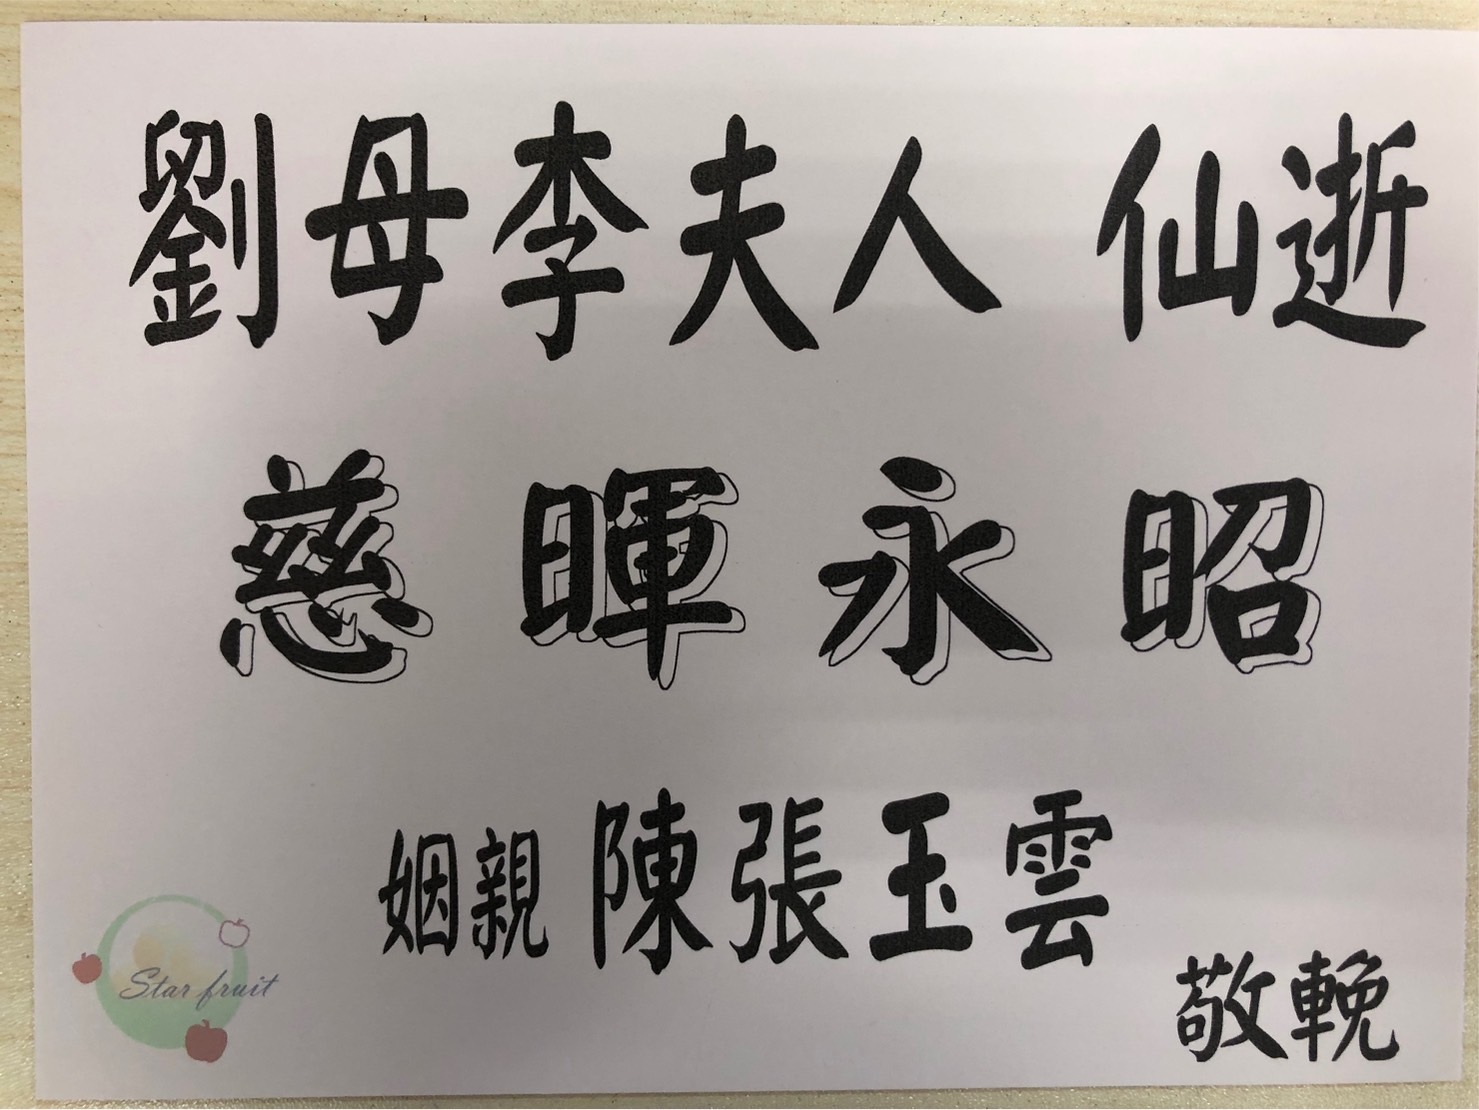 劉母李夫人 仙逝
慈暉永昭
姻親 陳張玉雲
敬輓
Star fruit